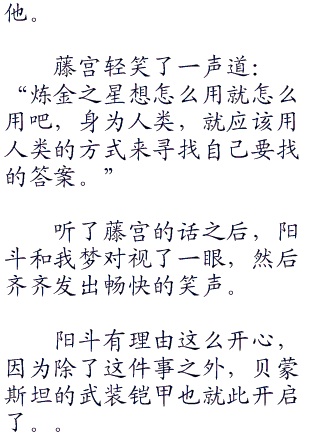 他。
藤宫轻笑了一声道：
“炼金之星想怎么用就怎么
用吧，身为人类，就应该用
人类的方式来寻找自己要找
的答案。”
听了藤宫的话之后，阳
斗和我梦对视了一眼，然后
齐齐发出畅快的笑声。
阳斗有理由这么开心，
因为除了这件事之外，贝蒙
斯坦的武装铠甲也就此开启
了。。